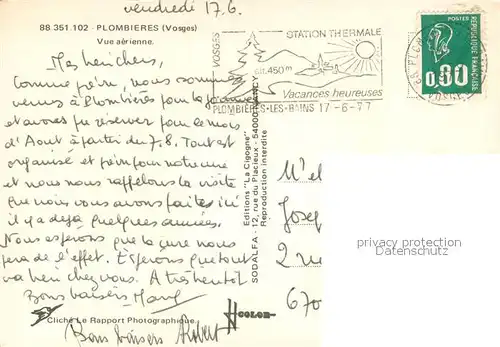 vendredi 17.6.
88.351.102 - PLOMBIERES (Vosges)
Vue aérienne.
VOSGES
STATION THERMALE
alt. 450m
Vacances heureuses
PLOMBIÈRES-LES-BAINS 17-6-77
POSTES
RÉPUBLIQUE FRANÇAISE
0,80
Mes bien chers,
Comme prévu, nous sommes
venus à Plombières pour la journée
et avons pu réserver pour le mois
d'Août à partir du 7.8. Tout est
organisé et prévu pour notre cure
et nous nous rappellons la visite
que nous vous avons faites ici
il y a déjà quelques années.
Nous espérons que la cure nous
fera de l'effet. Espérons que tout
va bien chez vous. A très bientôt
Bons baisers
Bons baisers Robert
Editions "La Cigogne"
SODALFA - 12, rue du Placieux - 54000
Reproduction interdite
COLOR
Cliché Le Rapport Photographique.
M et
Josep
2 rue
670
privacy protection
Datenschutz